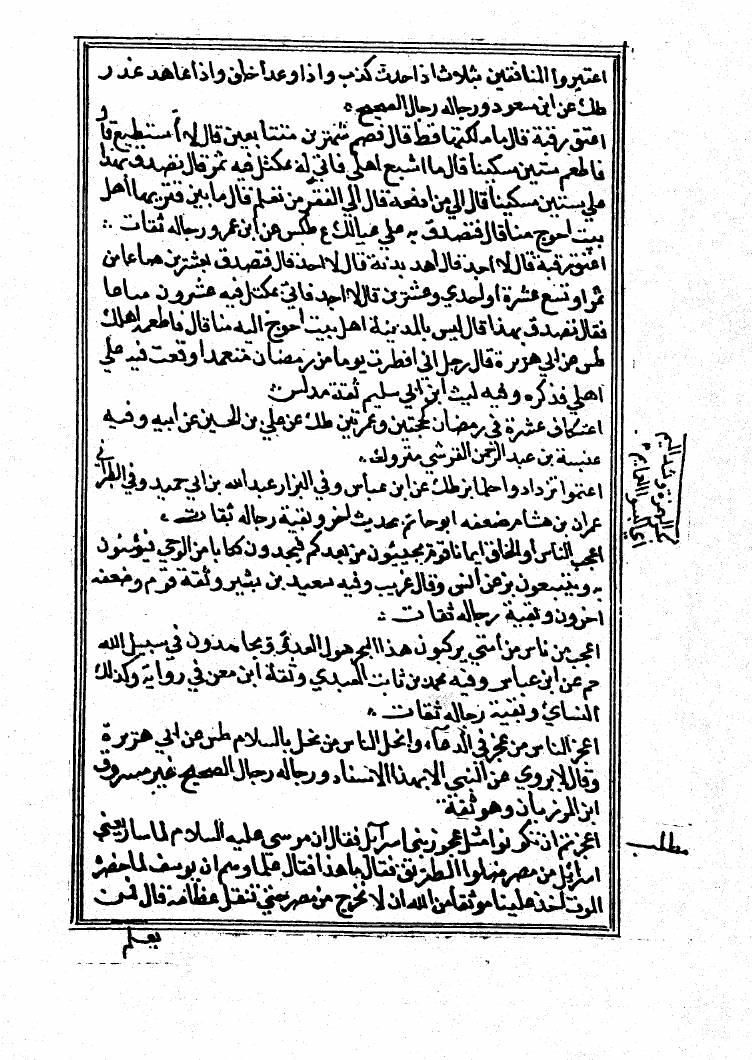 اعتبروا المنافقين بثلاث اذا حدث كذب واذا وعد اخلف واذا عاهد غدر
طك عن ابن سعود ورجاله رجال الصحيح
اعتق رقبة قال ما ملكتها قط قال فصم شهرين متتابعين قال لا استطيع قال
فاطعم ستين مسكينا قال ما اشبع اهلي فاتي له بمكتل فيه تمر قال تصدق بهذا
علي ستين مسكينا قال الي من ادفعه قال الي افقر من تعلم قال ما بين قتريها أهل
بيت احوج منا قال فتصدق به علي عيالك ع طكس عن ابن عمر ورجاله ثقات
اعتق رقبة قال لا اجد قال أهد بدنة قال لا اجد قال فتصدق بعشرين صاعا من
تمر او تسع عشرة او احدي وعشرين قال لا اجد فاتي بمكتل فيه عشرون صاعا
فقال تصدق بهذا قال ليس بالمدينة اهل بيت احوج اليه منا قال فاطعمه اهلك
طس عن ابي هريرة قال رجل اني افطرت يوما من رمضان متعمدا ووقعت فيه علي
اهلي فذكره وفيه ليث ابن ابي سليم ثقة مدلس
اعتكاف عشرة في رمضان كحجتين وعمرتين طك عن علي بن الحسين عن ابيه وفيه
عنبسة بن عبد الرحمن القرشي متروك
اعتموا تزدادوا حلما بز طك عن ابن عباس وفي البزار عبد الله بن ابي حميد وفي الطبراني
عمران بن هشام ضعفه ابو حاتم بحديث اخر وبقية رجاله ثقات
اعجب الناس او الخلق ايمانا قوم يجيئون من بعدكم فيجدون كتابا من الوحي فيؤمنون
به ويتبعون بز عن انس وقال غريب وفيه سعيد بن بشير وثقه قوم وضعفه
آخرون وبقية رجاله ثقات
اعجب من ناس من أمتي يركبون هذا البحر هول العدو ويجاهدون في سبيل الله
حم عن ابن عباس وفيه محمد بن ثابت العبدي وثقه ابن معين في رواية وكذلك
النساي وبقية رجاله ثقات
اعجز الناس من عجز في الدعاء وابخل الناس من بخل بالسلام طس عن ابي هريرة
وقال لا يروي عن النبي الا بهذا الاسناد ورجاله رجال الصحيح غير مسروق
ابن المرزبان وهو ثقة
اعجزتم ان تكونوا مثل عجوز بني اسرآيل فقال ان موسي عليه السلام لما سار ببني
اسرائيل من مصر ضلوا الطريق فقال ما هذا فقال علماوهم ان يوسف لما حضره
الموت اخذ علينا موثقا من الله ان لا نخرج من مصر حتي ننقل عظامه قال فمن
يعلم
مطلب